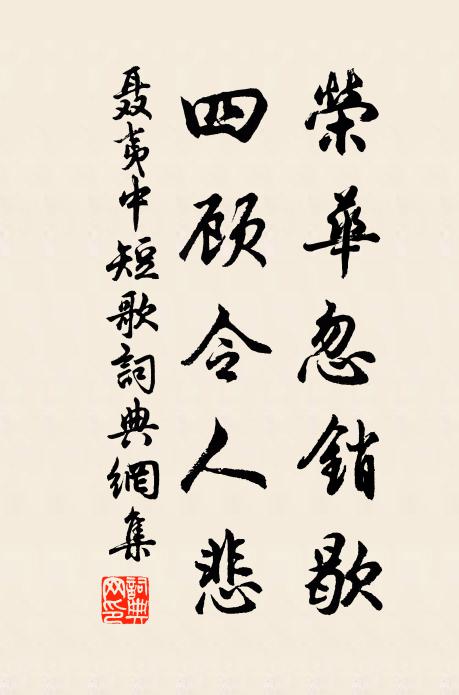 榮華忽銷歇
四顾令人悲
聂夷中短歌詞典網集
詞典网印